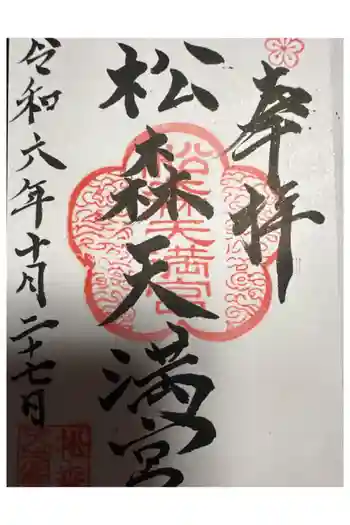 奉拝
松森天満宮
松森天満宮
令和六年十月二十七日